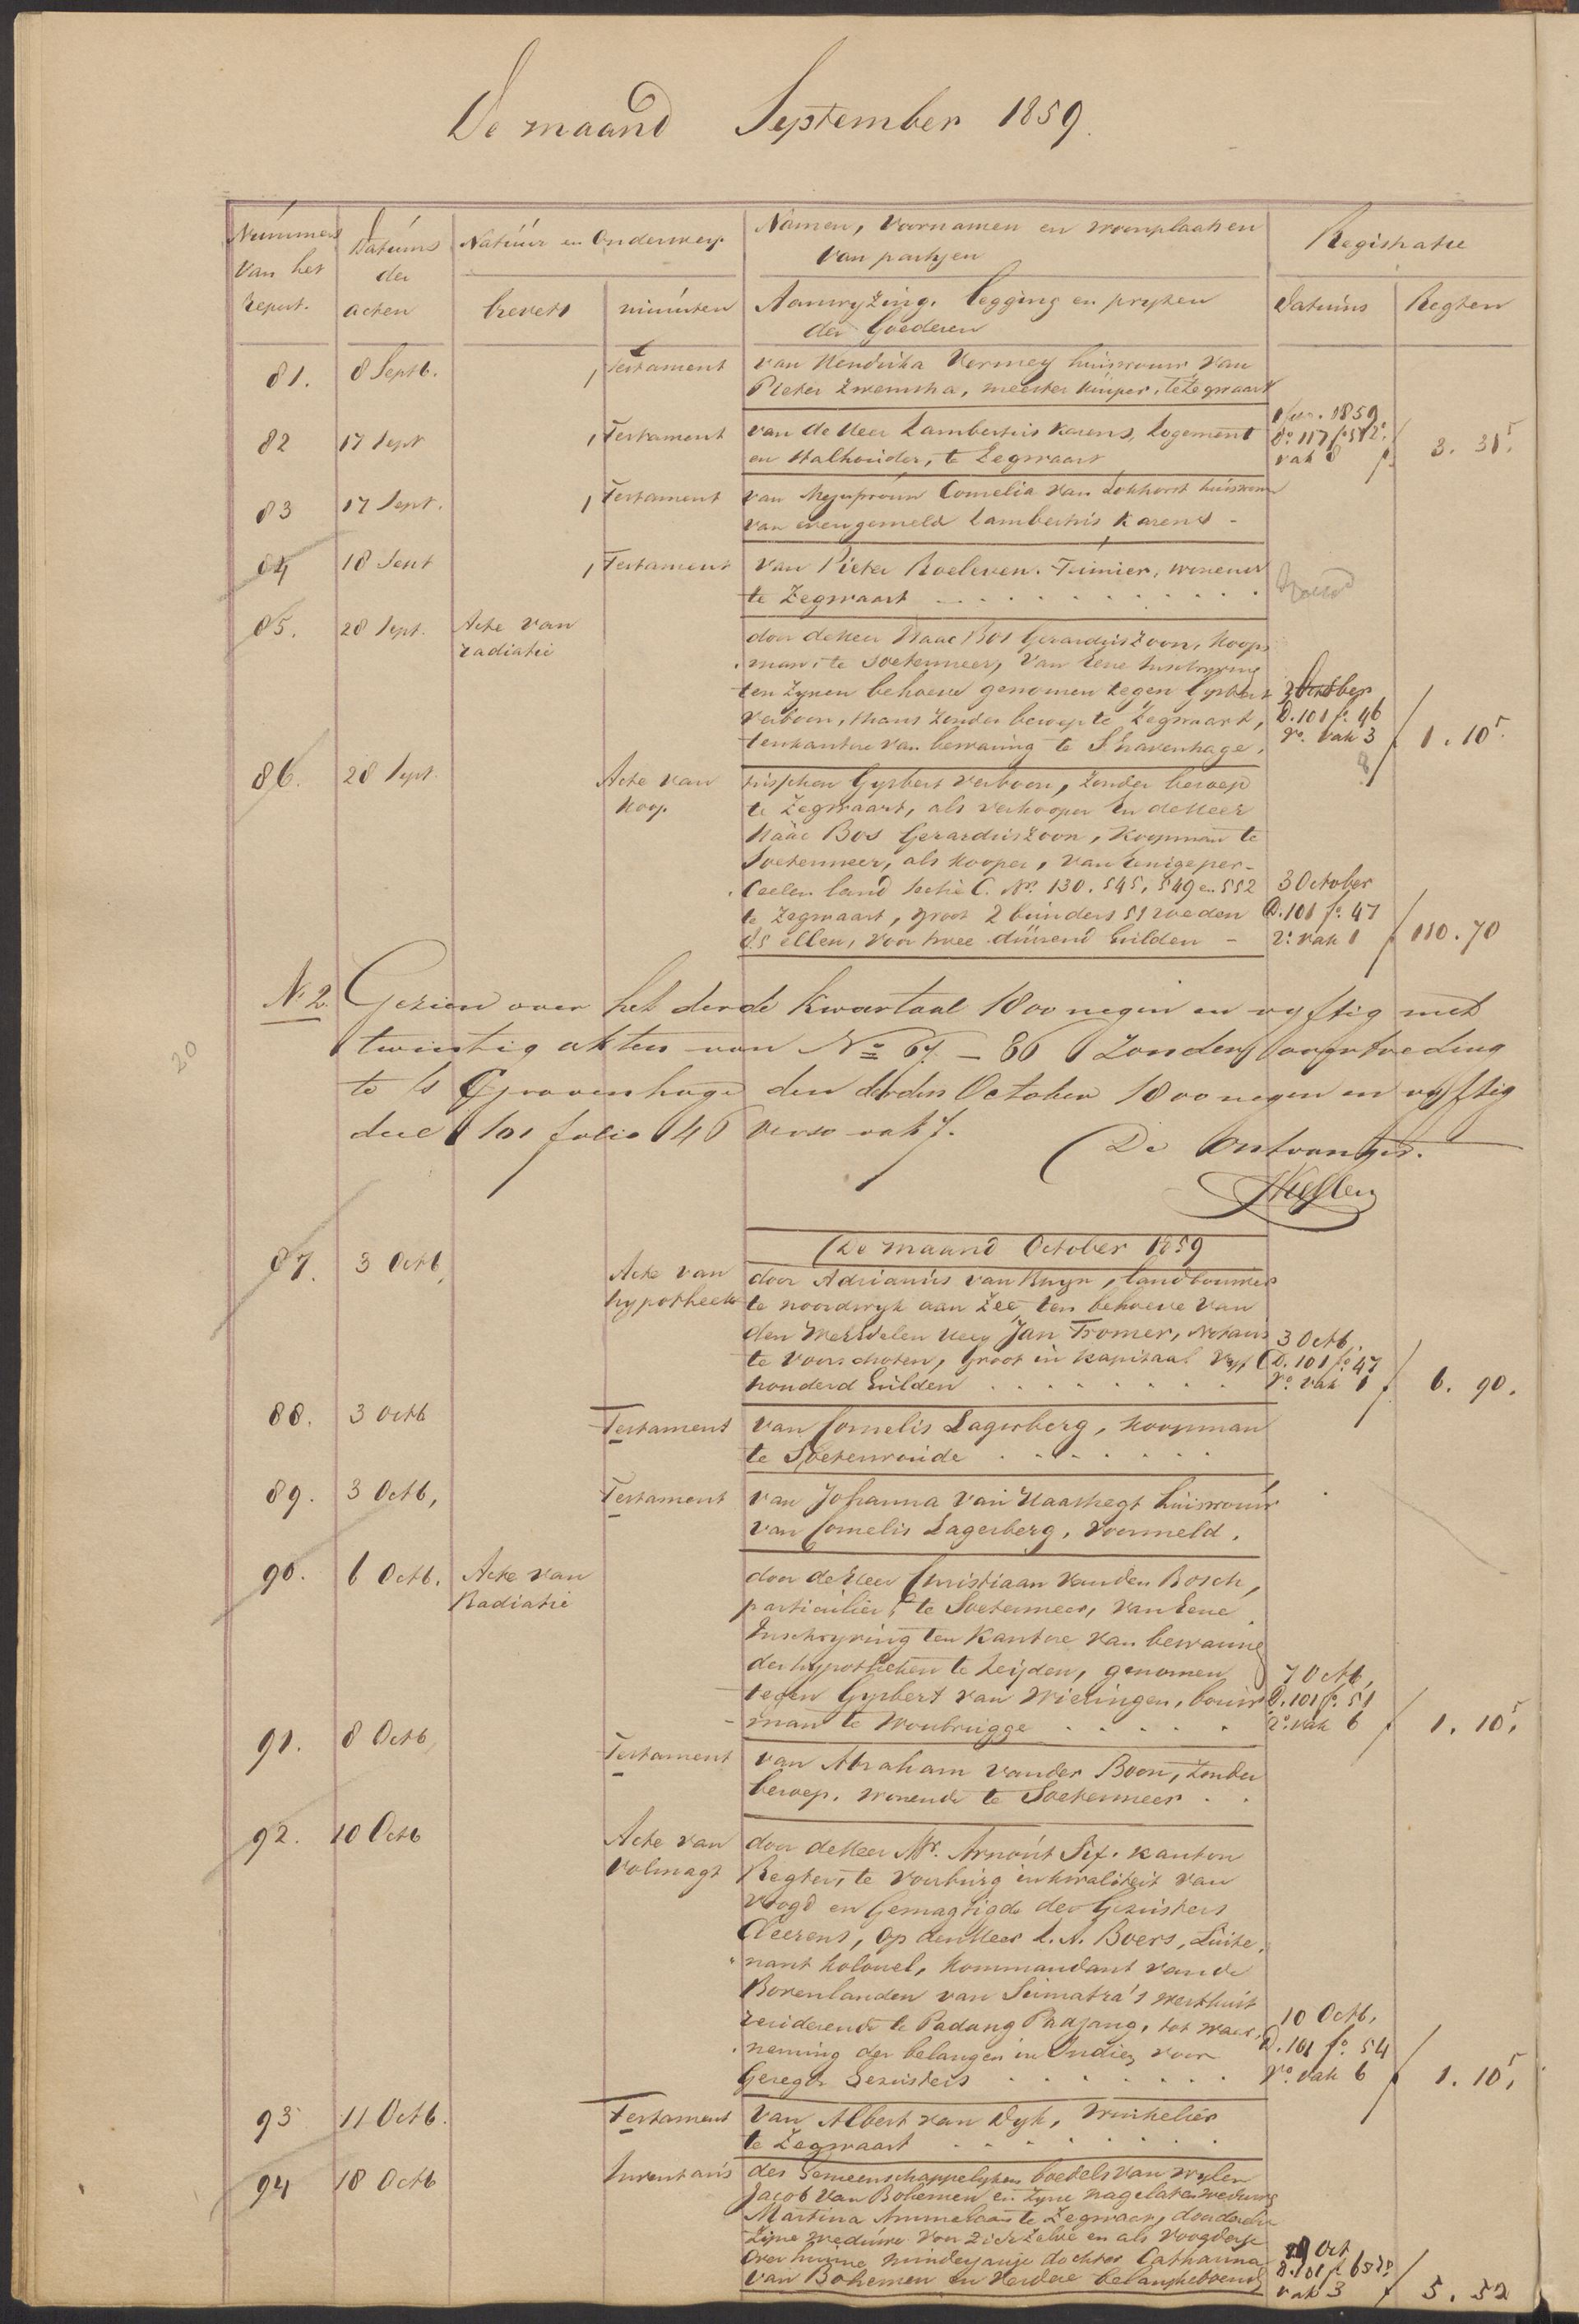 De maand September 1859.
Nummers van het repert.
Datums der acten
Natuur en Onderwerp
brevets
minuten
Namen, Voornamen en woonplaatsen
van partijen
Aanwyzing, legging en pryzen
der Goederen
Registratie
Datums
Regten
81. 8 Septb. Testament van Hendrika Vermey huisvrouw van
Pieter Zwenska, meester kuiper, te Zegwaart
82 17 Sept Testament van de Heer Lambertus Karens, Logement
en Stalhouder, te Zegwaart
1859
vak 8 f 3. 31⁵.
83 17 Sept. Testament van Mejufvrouw Cornelia van Lokhorst huisvrouw
van evengemeld Lambertus Karens -
84 18 Sept Testament van Pieter Roeleven. Tuinier, wonende
te Zegwaart
85. 28 Sept. Acte van
radiatie
door de Heer Isaac Bos Gerarduszoon, Koop-
man, te Soetermeer, van Eene Inschryving
ten zynen behoeve genomen tegen Gysbert
Verboon, thans zonder beroep te Zegwaart,
ten kantore van bewaring te S.Gravenhage.
3 October
D. 101 fo. 46
vo. vak 3 f 1. 10⁵.
86. 28 Sept. Acte van
Koop.
tusschen Gysbert Verboon, zonder beroep
te Zegwaart, als verkooper en de Heer
Isaäc Bos Gerarduszoon, Koopman te
Soetermeer, als kooper, van Eenige per-
ceelen land Sectie C. No. 130. 545, 549 en 552
te Zegwaart, groot 2 bunders 51 roeden
85 ellen, voor twee duizend Guldens -
3 October
D. 101 fo. 47
ro. vak 1 f 110. 70
No. 2. Gezien over het derde kwartaal 1800 negen en vyftig met
twintig akten van No 67 - 86 zonder overtreding
te 's Gravenhage den derden October 1800 negen en vyftig
deel 101 folio 46 verso vak 7.
De Ontvanger.
20
De maand October 1859
87. 3 Octb. Acte van
hypotheek
door Adrianus van Ruyn, landbouwer
te noordwyk aan Zee, ten behoeve van
den WelEdelen Heer Jan Tromer, Notaris
te Voorschoten, Groot in kapitaal Vyf
honderd Gulden
3 Octb.
D. 101 fo 47
vo. vak 1 f 6. 90.
88. 3 Octb Testament van Cornelis Lagerberg, Koopman
te Soeterwoude
89. 3 Octb, Testament van Johanna van Haastregt huisvrouw
van Cornelis Lagerberg, voormeld.
90. 6 Octb. Acte van
Radiatie
door de Heer Christiaan van den Bosch,
particulier, te Soetermeer, van Eene
Inschryving ten Kantore van bewaring
der hypotheken te Leijden, genomen
tegen Gysbert van Wieringen, bouw-
man te Woubrugge
7 Octb,
D. 101 fo. 51
ro. vak 6 f 1. 10⁵.
91. 8 Octb Testament van Abraham vander Boon, zonder
beroep. wonende te Soetermeer
92. 10 Octb Acte van
Volmagt
door de Heer Mr. Arnout Sif. kanton
Regter, te Voorburg in kwaliteit van
Voogd en Gemagtigde der Gezusters
Cleerens, op den Heer L. A. Boers, Luite-
nant kolonel, kommandant van de
Bovenlanden van Sumatra's westkust
resideerende te Padang Padjang, tot waar-
neming der belangen in Indien voor
Gezegde Gezusters
10 Octb,
D. 101 fo. 54
vo. vak 6 f 1. 10⁵.
93 11 Octb. Testament van Albert van Dyk, winkelier
te Zegwaart
94 18 Octb Inventaris des Gemeenschappelyken boedels van wylen
Jacob van Bohemen en zyne nagelaten weduwe
Martina Ammelaan te Zegwaart, door dezelve
zyne weduwe voor zich zelve en als voogdesse
over hunne minderjarige dochter Catharina
van Bohemen en verdere belanghebbende
20 Oct
D. 101 fo 65 ro
vak 3 f 5. 52